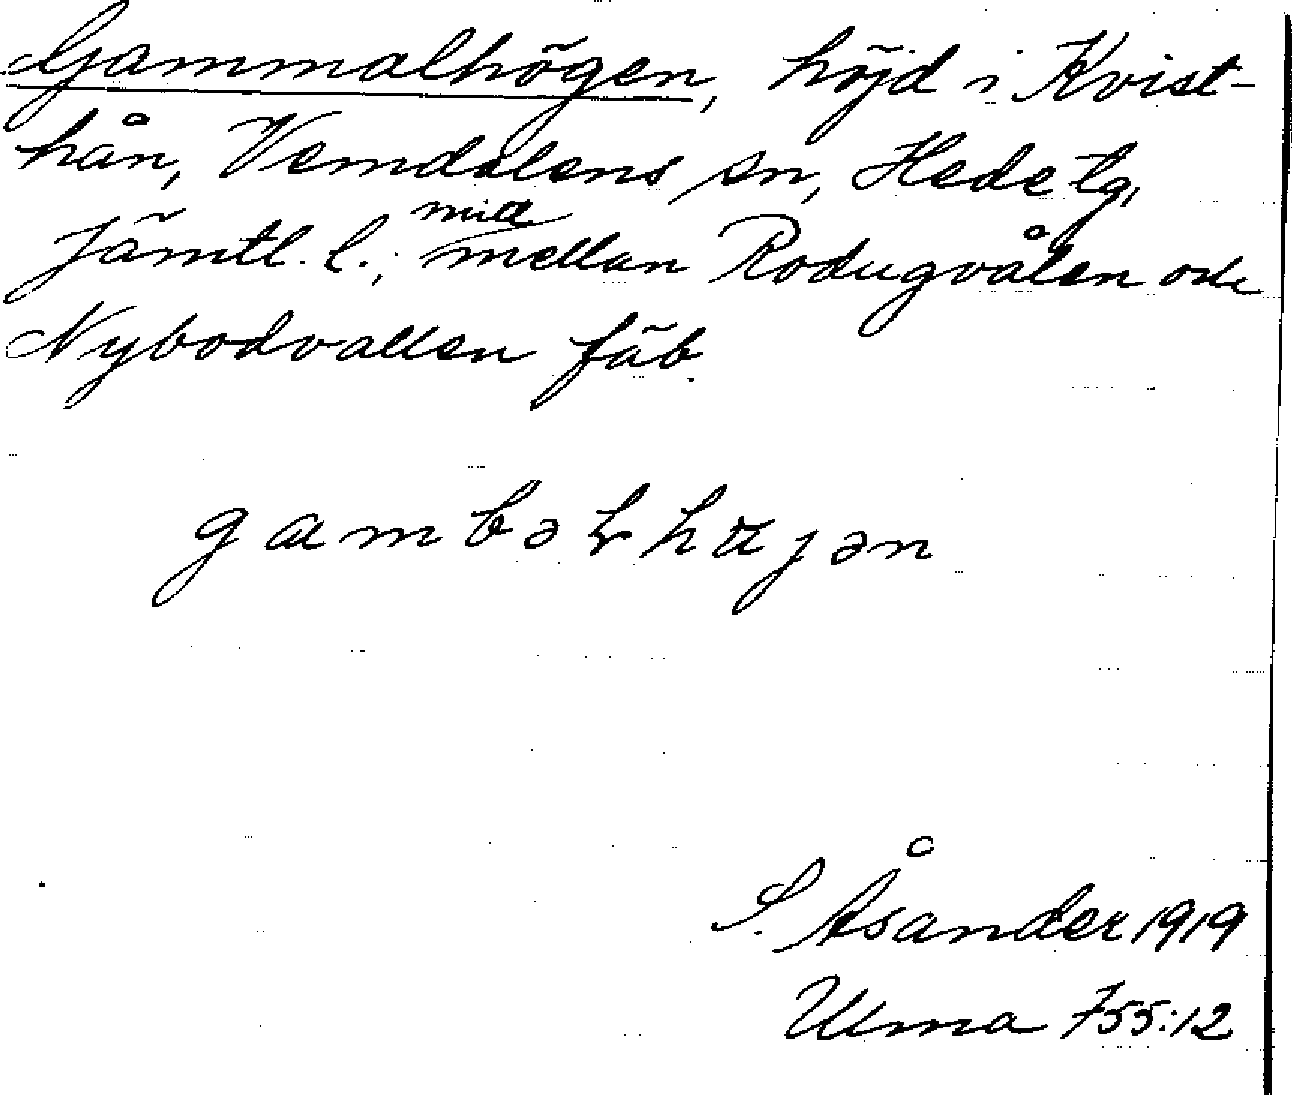 Gammalhögen, höjd i Kvist-
hån, Vemdalens sn, Hede tg,
Jämtl. l.; mitt mellan Rodugvålen och
Nybodvallen fäb.
gambəɫhɑ̈jən
S. Åsander 1919
Ulma 755:12